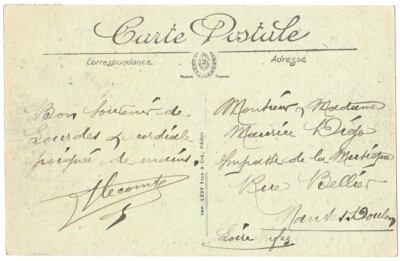 Carte Postale
Correspondance
Adresse
Bon Souvenir de
Lourdes & cordiale
poignée de mains.
Lecomte
Imp. LÉVY Fils & Cie, PARIS
Monsieur & Madame
Maurice
Impasse de la Musique
Rue Bellier
Nantes Doulon
Loire Infre